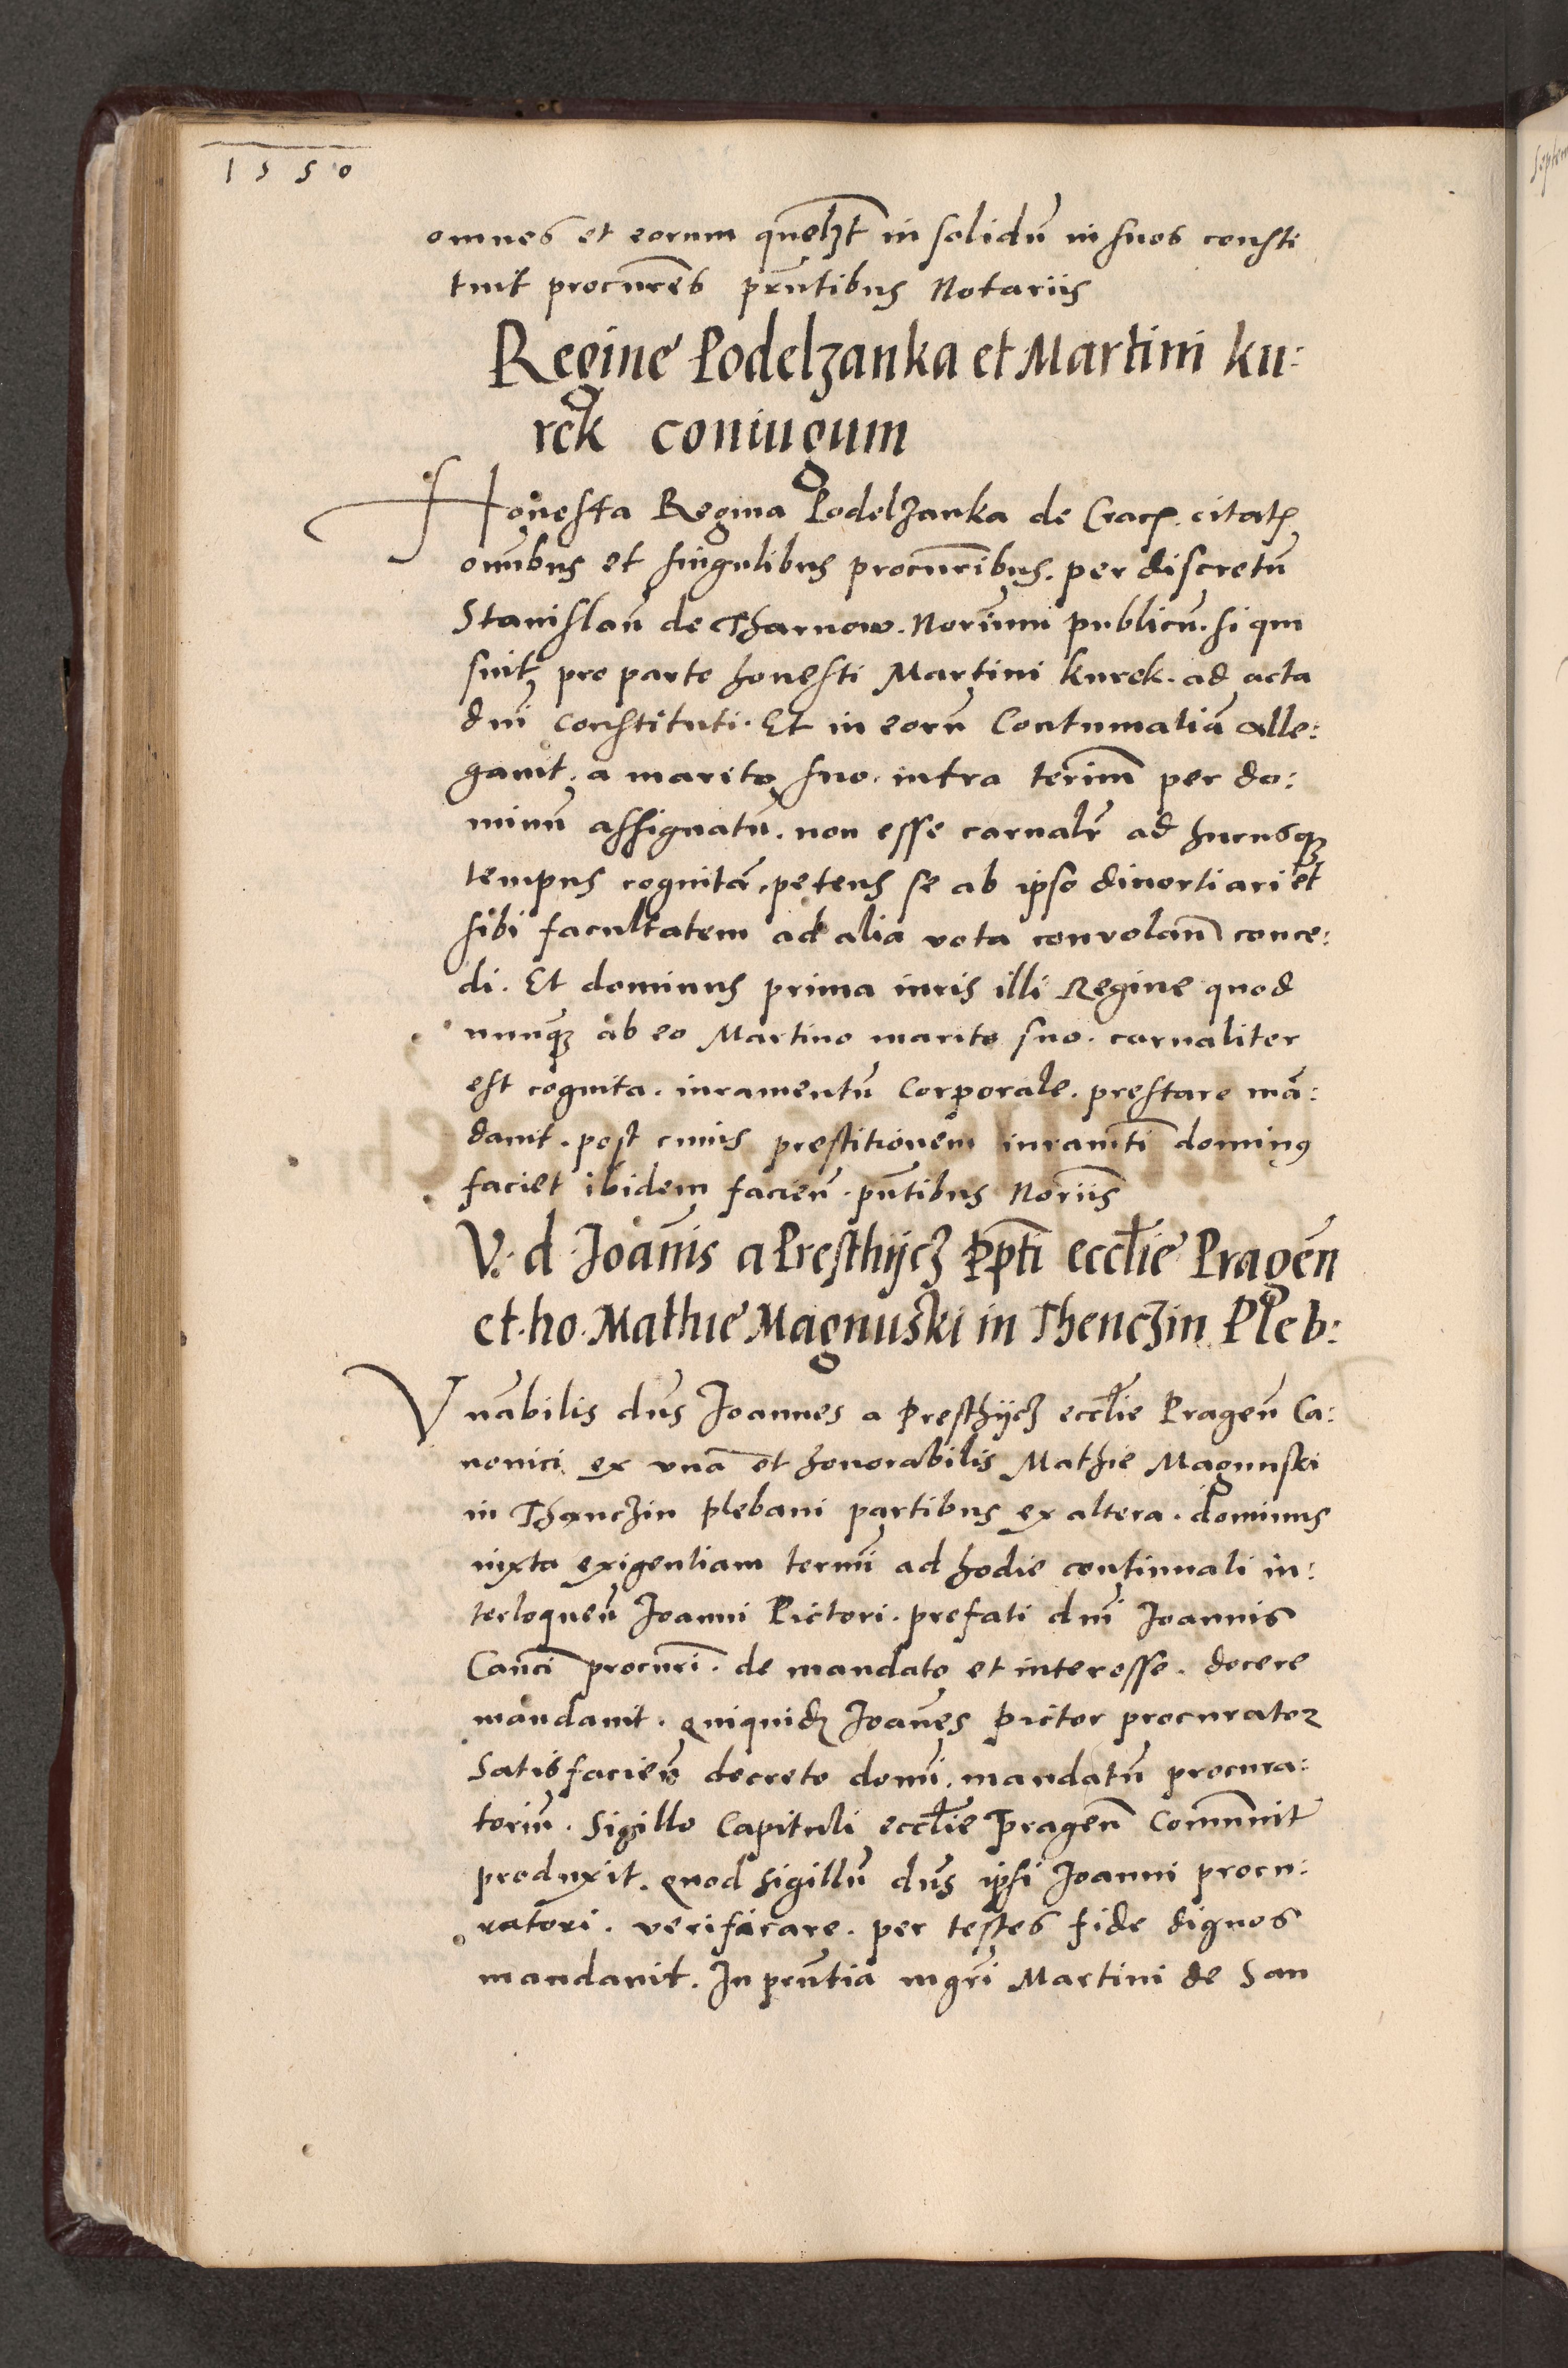 1550
omnes et eorum quelzt in solidū in suos consti
tuit procures pñtibus Notariis
Regine Podelzanka et Martini ku:
rek coniugum
Honesta Regina Podelzanka de Crac. citat.
omībus et singulibus procuribus. per discretū
Stanislaū de Tharnow. Noriūm publicū. si qui
sint pro parte honesti Martini kurek. ad acta
dni constituti. Et in eorū Contumatiā alle:
gauit. a marito suo. intra terim̄ per do:
minū assignatū. non esse carnalr̄ ad hucusqȝ
tempus cognitā. petens se ab ipso diuortiari et
sibi facultatem ad alia vota conuolan̄ conce:
di. Et dominus prima iuris illi Regine quod
nunqȝ ab eo Martino marito suo. carnaliter
est cognita. iuramentū Corporale. prestare mā:
dauit. post cuius prestitionem iuramti dominꝰ
faciet ibidem facien̄. pñtibus Noriis
V. d. Joānis a Presthijcz Ppti eccłie Pragen̄
et. ho. Mathie Magnuski in Thenczin Pleb:
Vnābilis dn̄s Joannes a Presthijcz eccłie Pragen̄ Ca:
nonici ex vna et honorabilis Mathie Magnuski
in Thenczin Plebani partibus ex altera. dominus
iuxta exigentiam termi ad hodie continuati in:
terloquen̄ Joanni Pictori. prefati dni Joannis
Canci procuri. de mandato et interesse. docere
mandauit. Quiquidȝ Joanēs Pictor procurator
Satisfacien̄ decreto domi. mandatū procura:
toriū. Sigillo Capituli eccłie Pragen̄ Communit
produxit. Quod sigillū dn̄s ipsi Joanni procu:
ratori. verificare. per testes fide dignos
mandauit. In pn̄tia mgri Martini de San